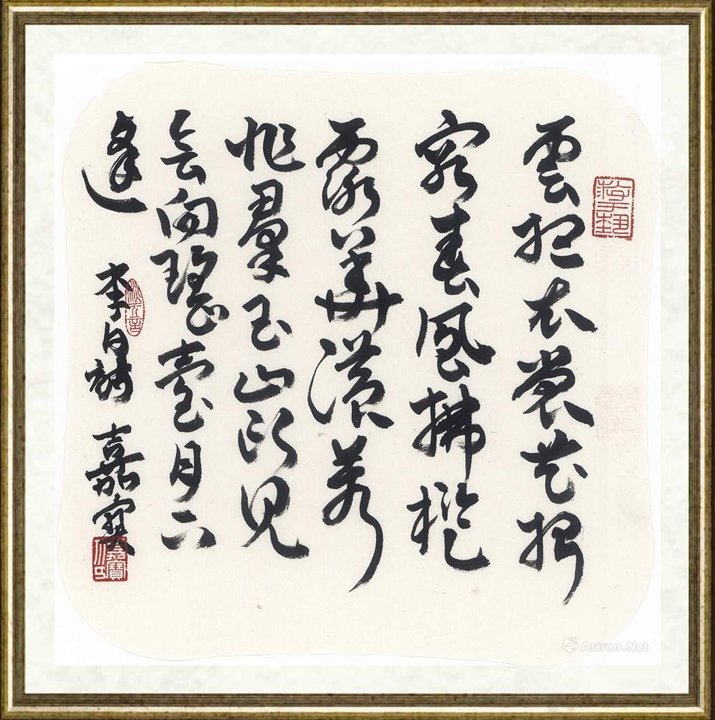 雲想衣裳花想
容春風拂檻
露華濃若
非羣玉山頭見
會向瑤臺月下
逢
李白詩 嘉寶
Artron.Net